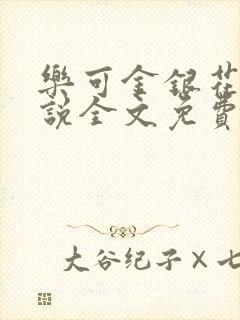 樂可金銀花
說全文免費
大谷纪子×七